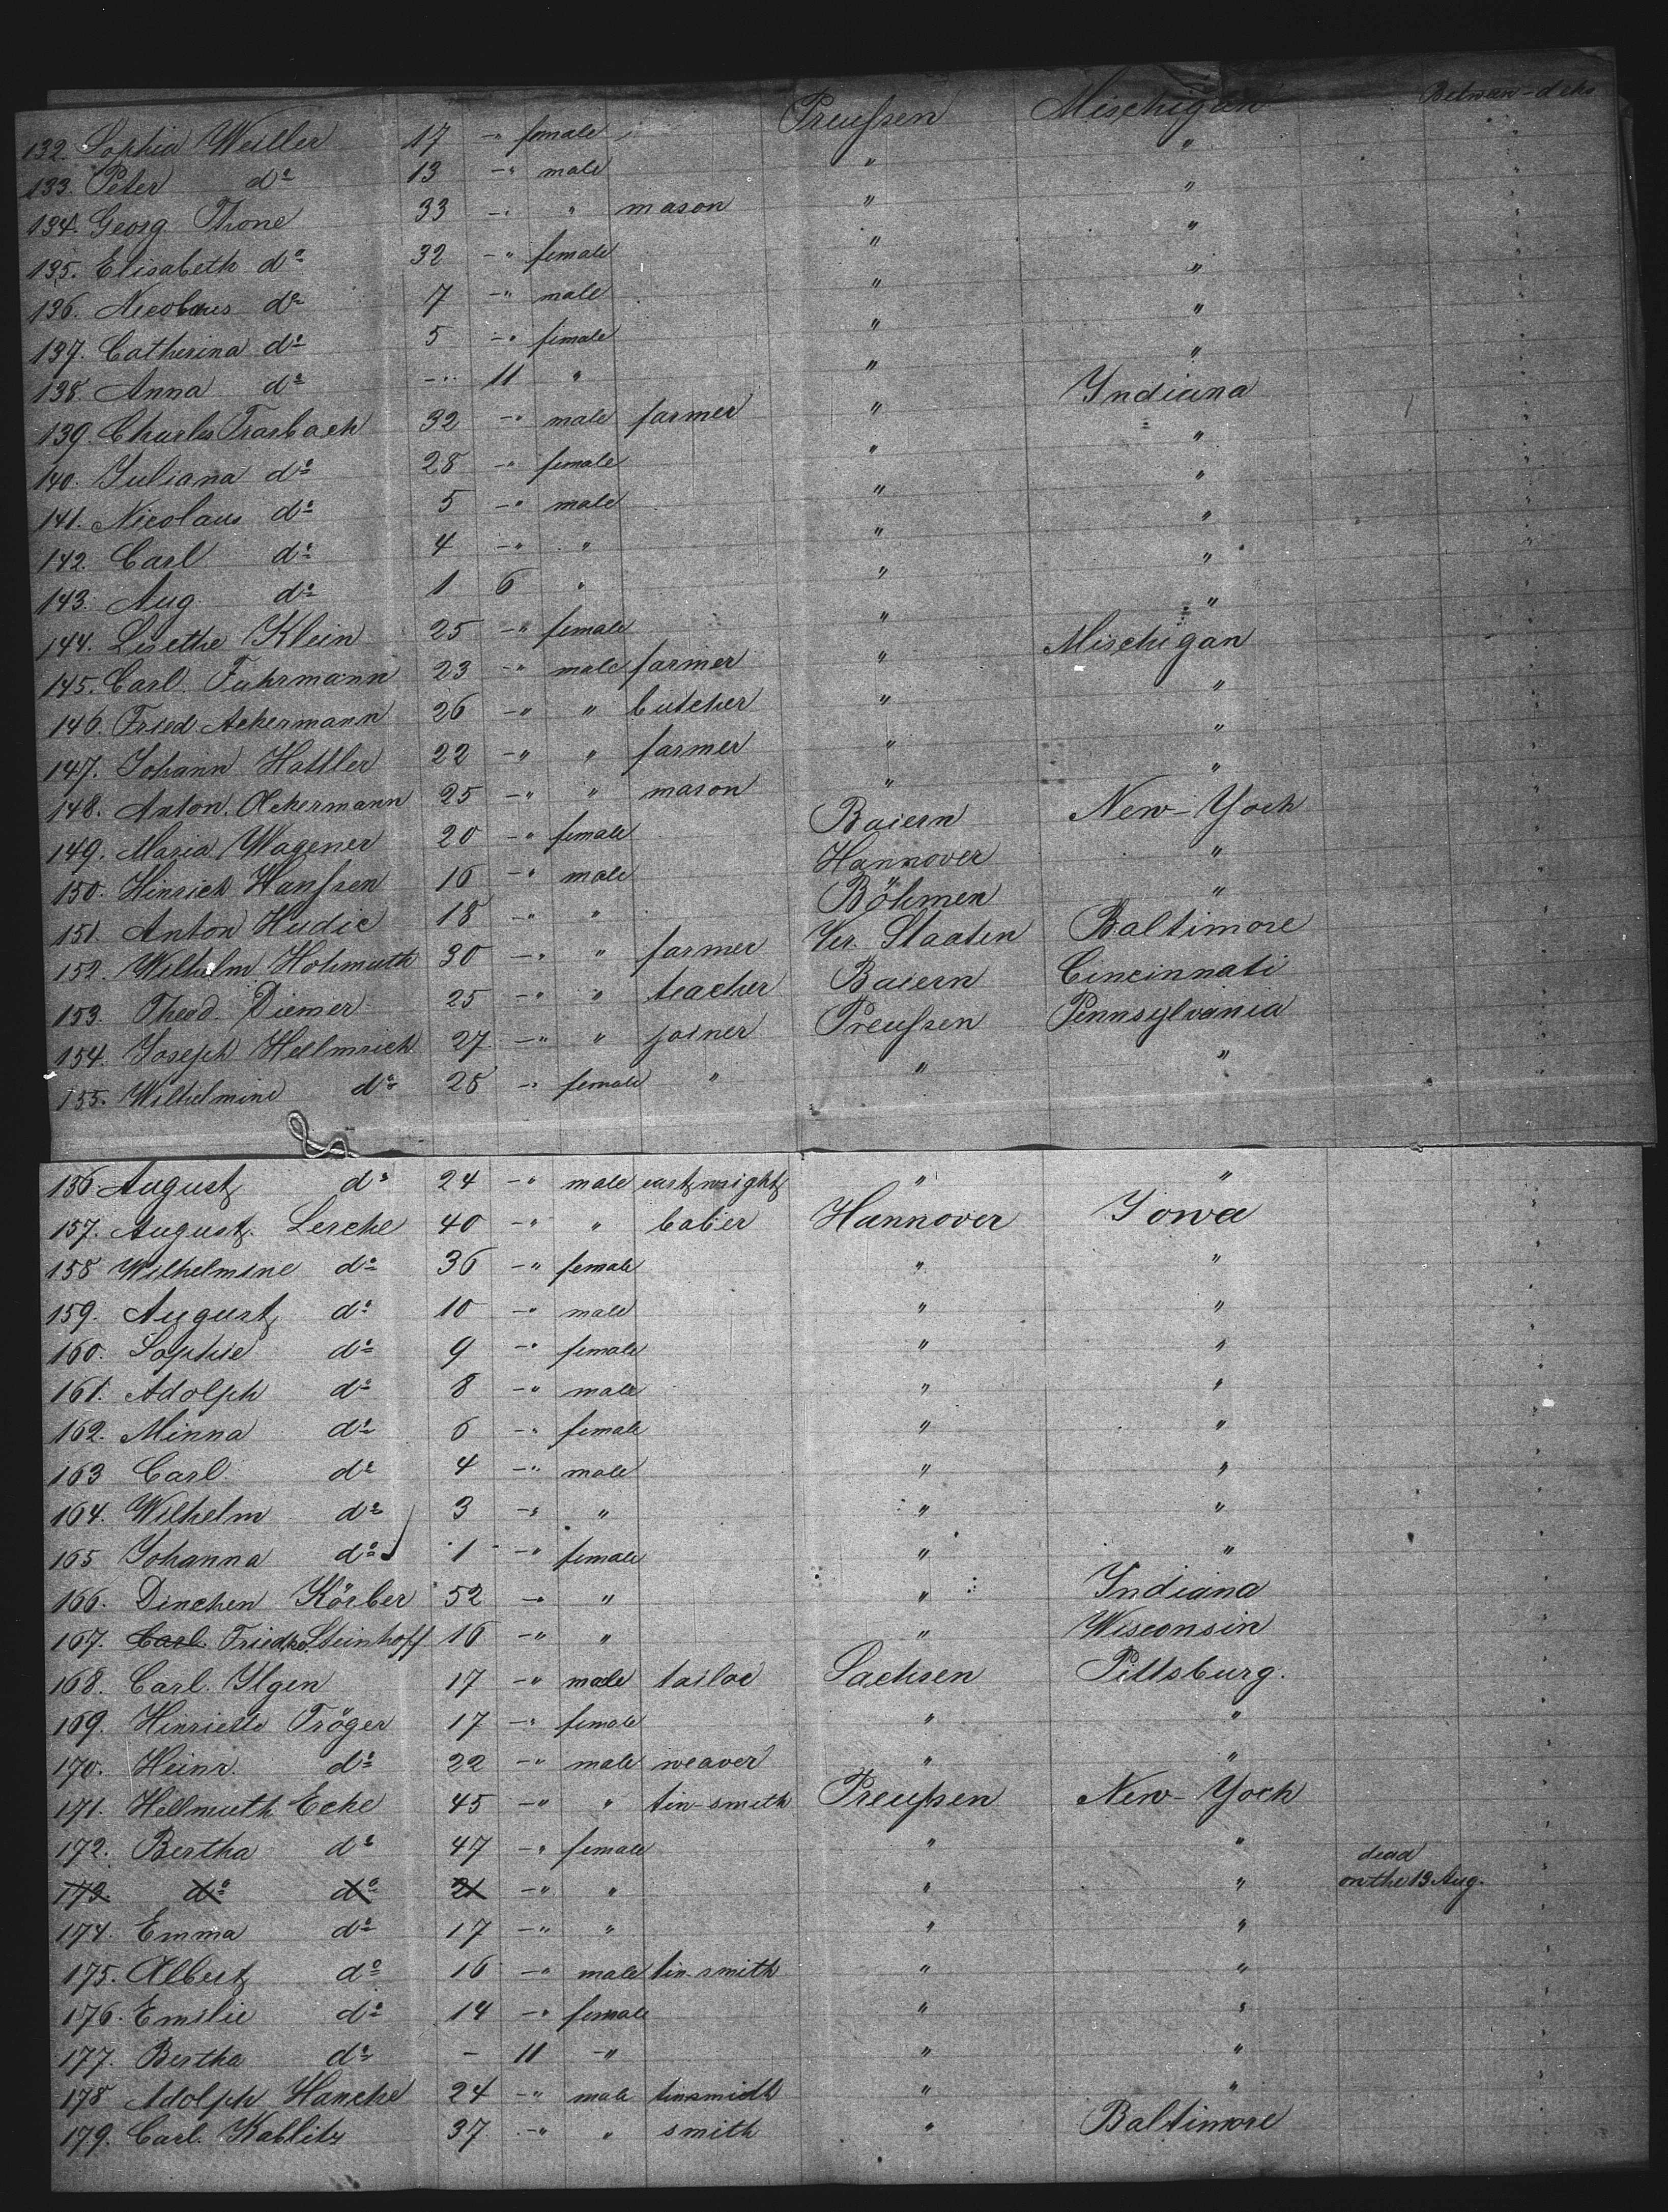 132. Sophia Weiller 17 -" female Preußen Mischigan Between-decks
133. Peter do 13 -" male " "
134. Georg Thone 33 -" " mason " "
135. Elisabeth do 32 -" female " "
136. Nicolaus do 7 -" male " "
137. Catherina do 5 -" female " "
138. Anna do -" 11 " " "
139. Charles Trarbach 32 -" male farmer " Yndiana
140. Juliana do 28 -" female " "
141. Nicolaus do 5 -" male " "
142. Carl do 4 -" " " "
143. Aug. do 1 6 " " "
144. Lisethe Klein 25 -" female " "
145. Carl Fuhrmann 23 -" male farmer " Mischigan
146. Fried Ackermann 26 -" " butcher " "
147. Johann Hattler 22 -" " farmer " "
148. Anton Ackermann 25 -" " mason " "
149. Maria Wagener 20 -" female Baiern New-Yock
150. Hinrich Hanssen 16 -" male Hannover "
151. Anton Hudic 18 -" " Böhmen "
152. Wilhelm Hohmuth 30 -" " farmer Ver. Staaten Baltimore
153. Theod. Diemer 25 -" " teacher Baiern Cincinnati
154. Joseph Hellmrich 27 -" " joiner Preußen Pennsylvania
155. Wilhelmine do 28 -" female " " "
156. August do 24 -" male cartwright " "
157. August Lerche 40 -" " baber Hannover Iowa
158 Wilhelmine do 36 -" female " "
159. August do 10 -" male " "
160. Sophie do 9 -" female " "
161. Adolph do 8 -" male " "
162. Minna do 6 -" female " "
163 Carl do 4 -" male " "
164. Wilhelm do 3 -" " " "
165 Johanna do 1 -" female " "
166. Dinchen Körber 52 -" " " Yndiana
167. Carl Friedke Steinhoff 16 -" " " Wisconsin
168. Carl Ylgen 17 -" male tailor Sachsen Pittsburg.
169. Hinriette Tröger 17 -" female " "
170. Heinr. do 22 -" male weaver " "
171. Hellmuth Ecke 45 -" " tin-smith Preußen New-Yock
172. Bertha do 47 -" female " "
173. do do 21 -" " " " dead on the 13 Aug.
174. Emma do 17 -" " " "
175. Albert do 16 -" male tin-smith " "
176. Emilie do 14 -" female " "
177. Bertha do - 11 -" " "
178 Adolph Hancke 24 -" male tinsmidh " "
179. Carl Kablitz 37 -" " smith " Baltimore